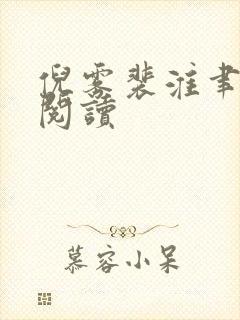 倪雾裴淮聿
閱讀
慕容小呆